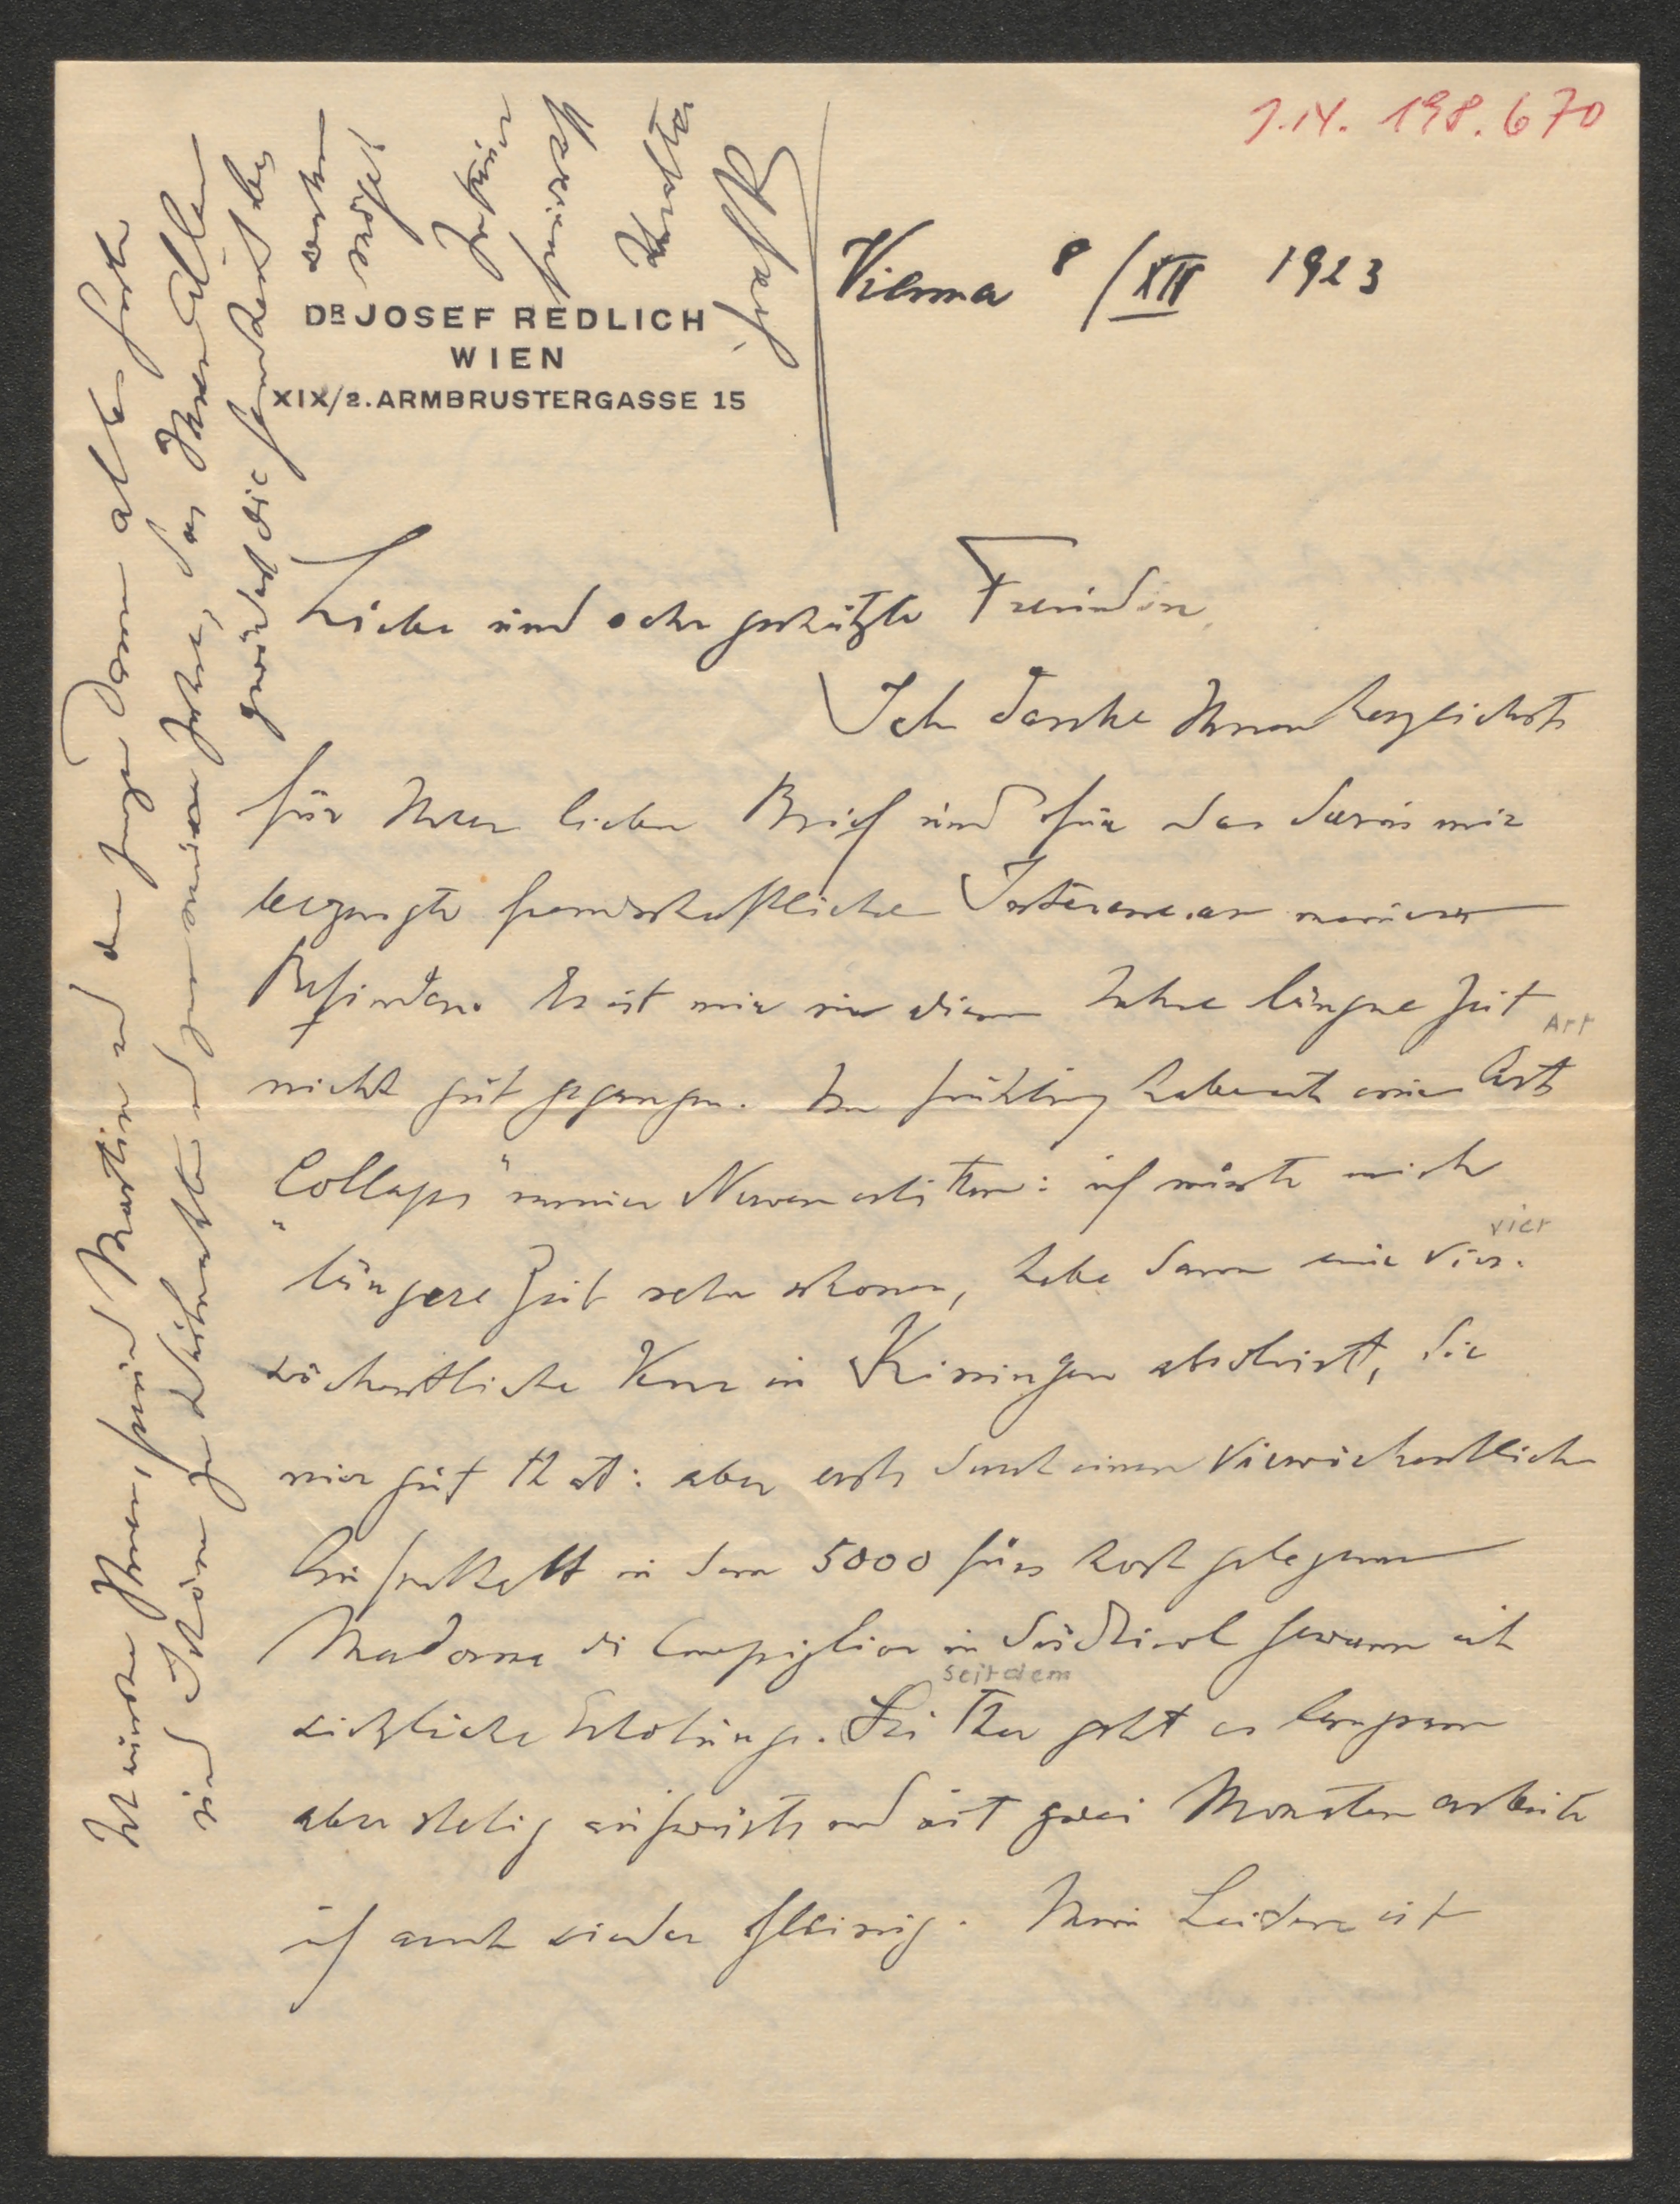 J.N. 198.670
DR JOSEF REDLICH
WIEN
XIX/2. ARMBRUSTERGASSE 15
Vienna 8/XII 1923
Liebe und sehr geschätzte Freundin,
Ich danke Ihnen herzlichst
für Ihren lieben Brief und für das darin mir
bezeugte freundschaftliche Interesse an meinem
Befinden. Es ist mir in diesem Jahre längere Zeit
nicht gut gegangen. Im Frühling habe ich eine Art
Art
"Collaps" meiner Nerven erlitten: ich mußte mich
längere Zeit sehr schonen, habe dann eine vier-
vier
wöchentliche Kur in Kissingen absolvirt, die
mir gut that: aber erst durch einen vierwöchentlichen
Aufenthalt in dem 5000 Fuss hoch gelegenen
Madonna di Campiglio in Südtirol gewann ich
wirkliche Erholung. Seither geht es langsam
seitdem
aber stetig aufwärts und seit zwei Monaten arbeite
ich auch wieder fleissig. Mein Leiden ist
Ich wünsche Ihnen, und den jungen Damen alles Gute
und Schöne zu Weihnachten und zum neuen Jahre, das Ihnen Allen
werden
möge!
In
Josef Redlich